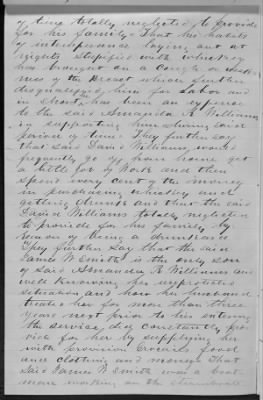 of time totally neglected to provide
for his family. That his habits
by intemperance laying out at
nights stupified with whiskey
has brought on a cough & weak
ness of the Breast which further
disqualifyed him for labor and
in short has been an expense
to the said Amanda R Williams
in supporting him during said
period of time. They further say
that said David Williams, would
frequently go off from home get
a little job of work and then
spend every cent of the money
in purchasing whiskey and
getting drunk and that the said
David Williams totally neglected
to provide for his family by
reason of being a drunkard
They further say that the said
James W Smith is the only son
of said Amanda R Williams and
well knowing her unprotected
situation and how her husband
treated her for more than three
years next prior to his entering
the service, did constantly pro
vide for her by supplying her
with provision Groceries food
and clothing and money. That
said James W Smith was a boat
man working on the steamboat